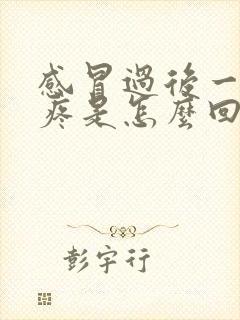 感冒過後一
疼是怎麼回
彭宇行